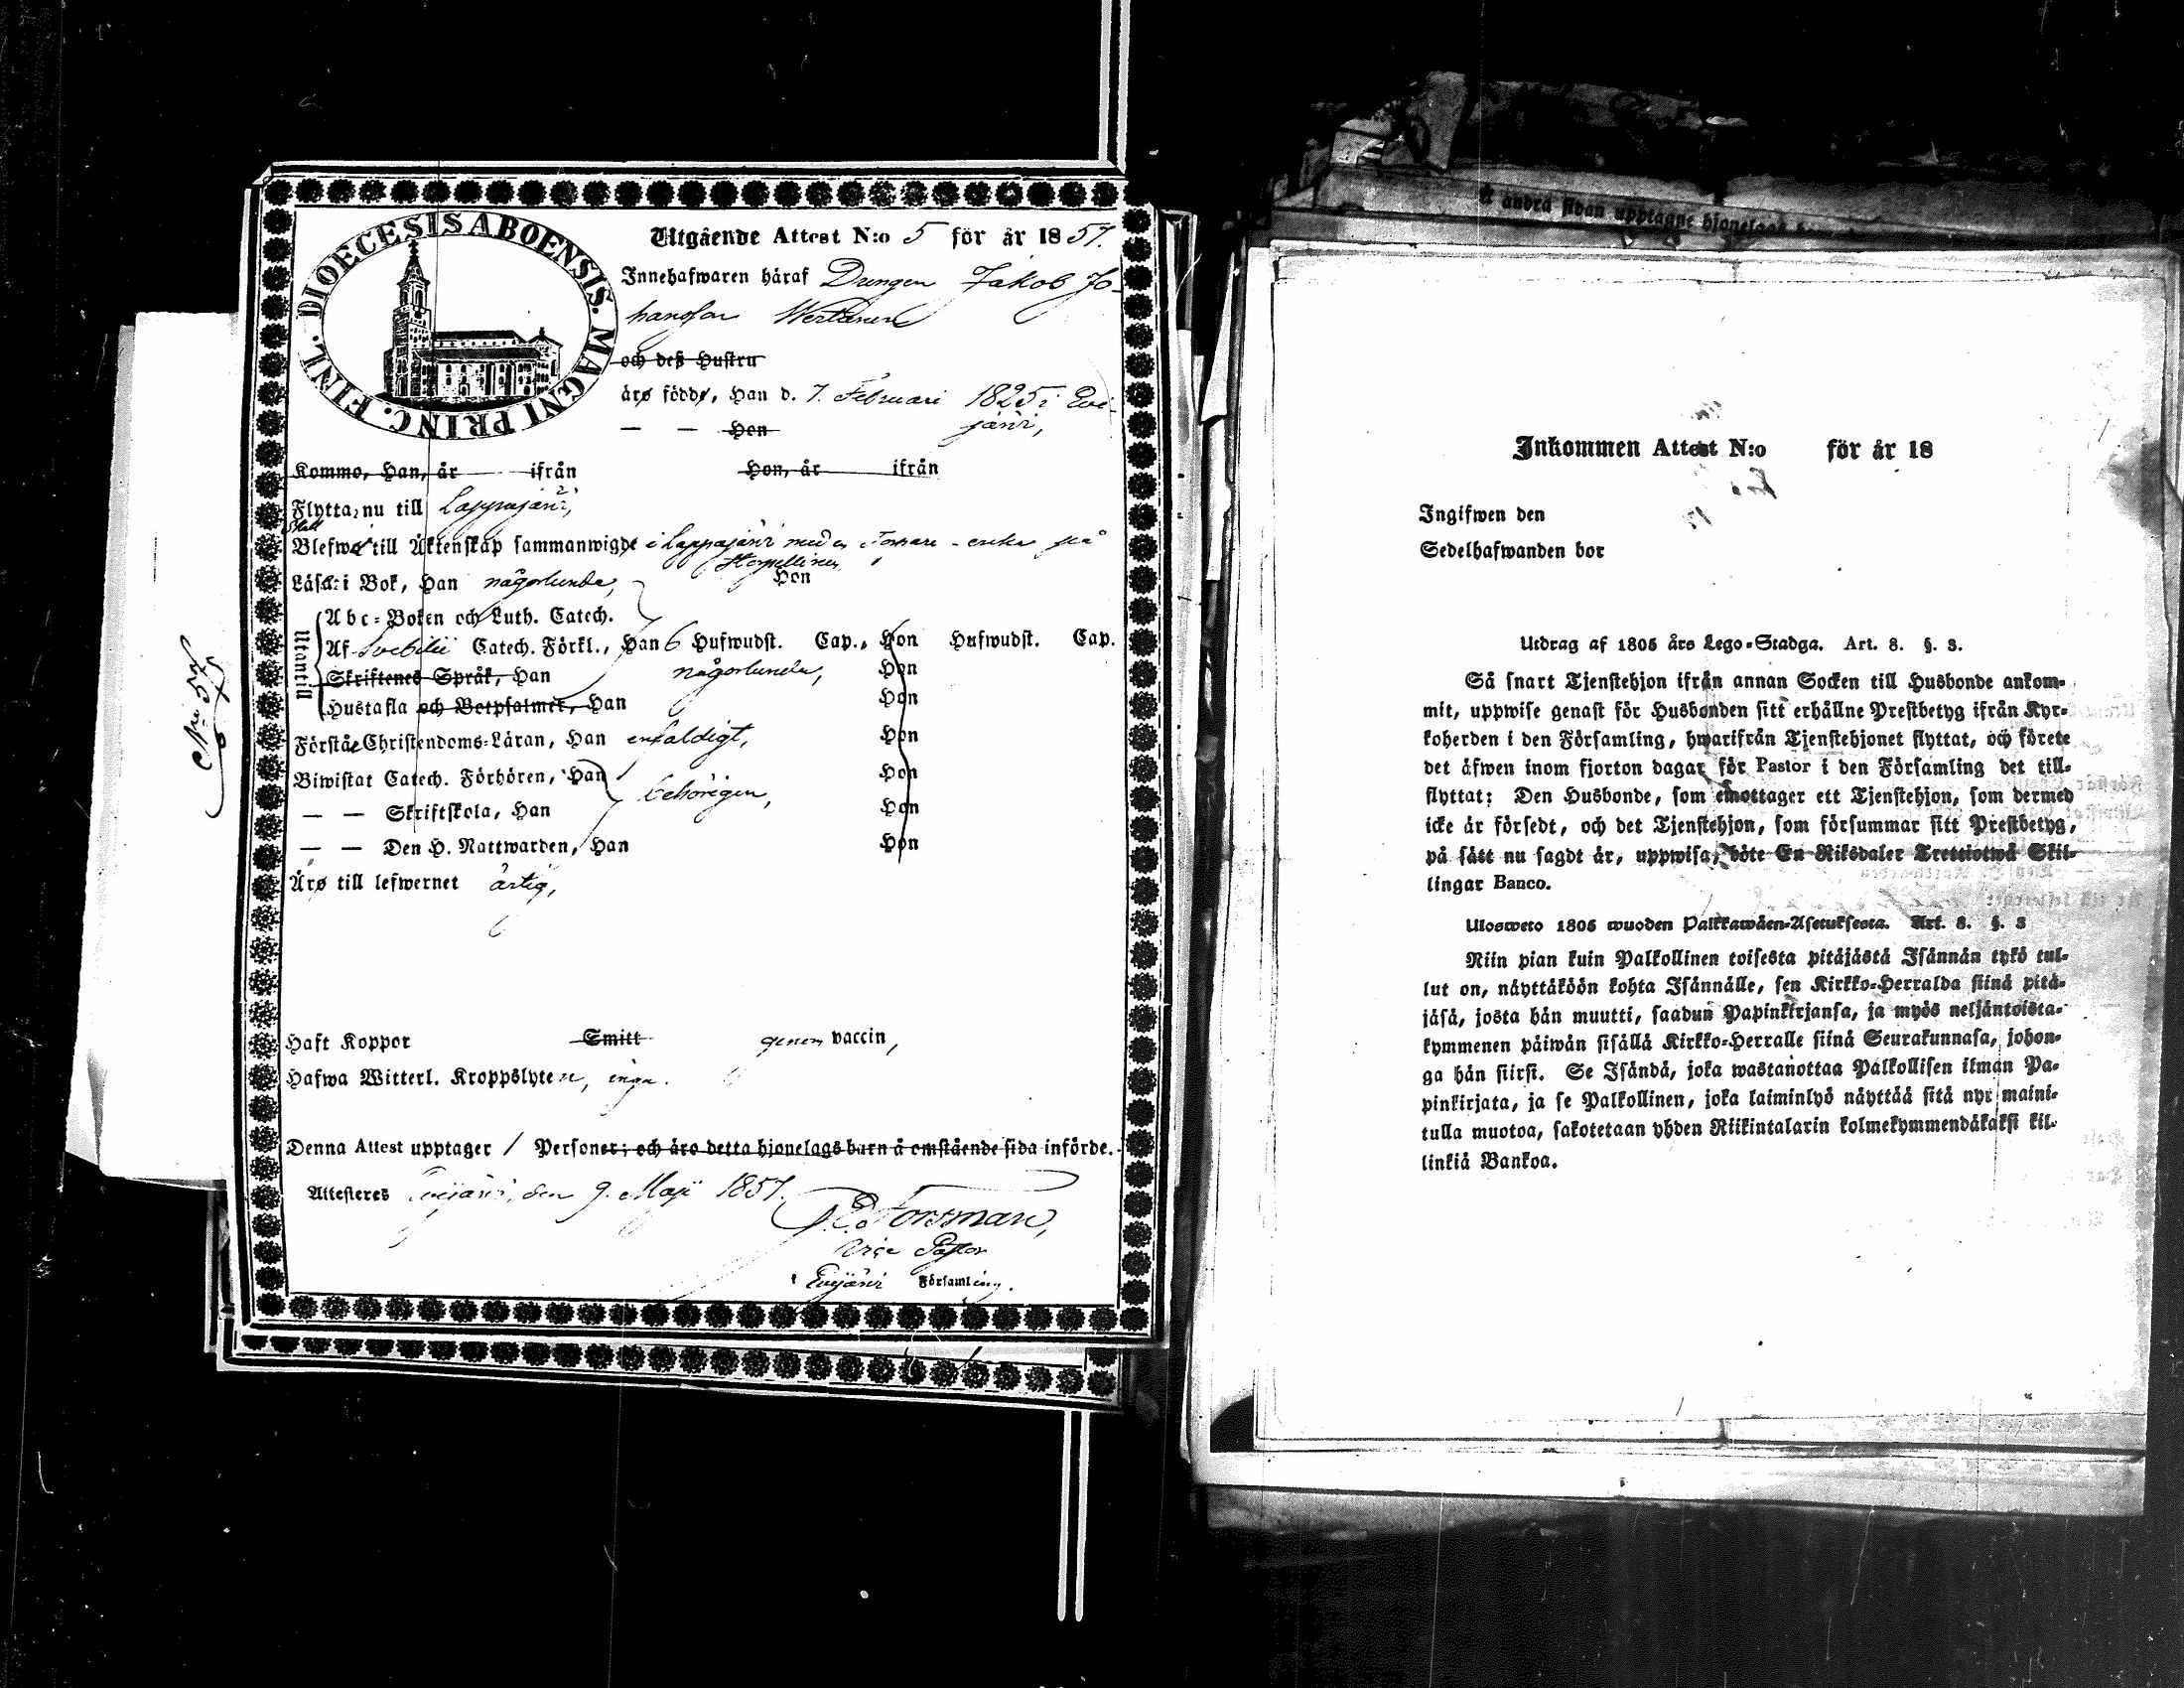 DIOECESIS ABOENSIS. MAGNI PRINC. FINL.
Utgående Attest N:o 5 för år 1857.
Innehafwaren häraf Drengen Jakob Jo-
hansson Wertanen
och deß Hustru
äro födde, Han d. 7. Februari 1825 i Evi-
— — Hon järvi,
Kommo, Han, år ifrån Hon, år ifrån
Flytta nu till Lappajärvi,
Blefwo till Äktenskap sammanwigde i Lappajärvi med en Torpare-enka på
Läsa i Bok, Han någorlunda, Hon
Utantill
Abc-Boken och Luth. Catech.
Af Svebilii Catech. Förkl., Han 6 Hufwudst. Cap., Hon Hufwudst. Cap.
Skriftenes Språk, Han någorlunda, Hon
Hustafla och Botpsalmer, Han Hon
Förstå Christendoms-Läran, Han enfaldigt, Hon
Biwistat Catech. Förhören, Han Hon
behörigen,
— — Skriftskola, Han Hon
— — Den H. Nattwarden, Han Hon
Äro till lefwernet ärlig,
Haft Koppor Smitt genom vaccin,
Hafwa Witterl. Kroppslyten, inga.
Denna Attest upptager 1 Personer; och äro detta hjonelags barn å omstående sida införde.
Attesteres Evijärvi, den 9. Maji 1857.
Forsman,
Vice Pastor
Evijärvi Församling.
No 57
å andra sidan upptagne hjonelags
Inkommen Attest N:o för år 18
Ingifwen den
Sedelhafwanden bor
Utdrag af 1805 års Lego-Stadga. Art. 8. §. 3.
Så snart Tjenstehjon ifrån annan Socken till Husbonde ankom-
mit, uppwise genast för Husbonden sitt erhållne Prestbetyg ifrån Kyr-
koherden i den Församling, hwarifrån Tjenstehjonet flyttat, och förete
det äfwen inom fjorton dagar för Pastor i den Församling det till-
flyttat: Den Husbonde, som emottager ett Tjenstehjon, som dermed
icke är försedt, och det Tjenstehjon, som försummar sitt Prestbetyg,
på sätt nu sagdt är, uppwisa, böte En Riksdaler Trettiotwå Skil-
lingar Banco.
Ulosweto 1805 wuoden Palkkawäen-Asetuksesta. Art. 8. §. 3
Niin pian kuin Palkollinen toisesta pitäjästä Isännän tykö tul-
lut on, näyttäköön kohta Isännälle, sen Kirkko-Herralda siinä pitä-
jäsä, josta hän muutti, saadun Papinkirjansa, ja myös neljäntoista-
kymmenen päiwän sisällä Kirkko-Herralle siinä Seurakunnasa, johon-
ga hän siirsi. Se Isändä, joka wastanottaa Palkollisen ilman Pa-
pinkirjata, ja se Palkollinen, joka laiminlyö näyttää sitä nyt maini-
tulla muotoa, sakotetaan yhden Riikintalarin kolmekymmendäkaksi kil-
linkiä Bankoa.